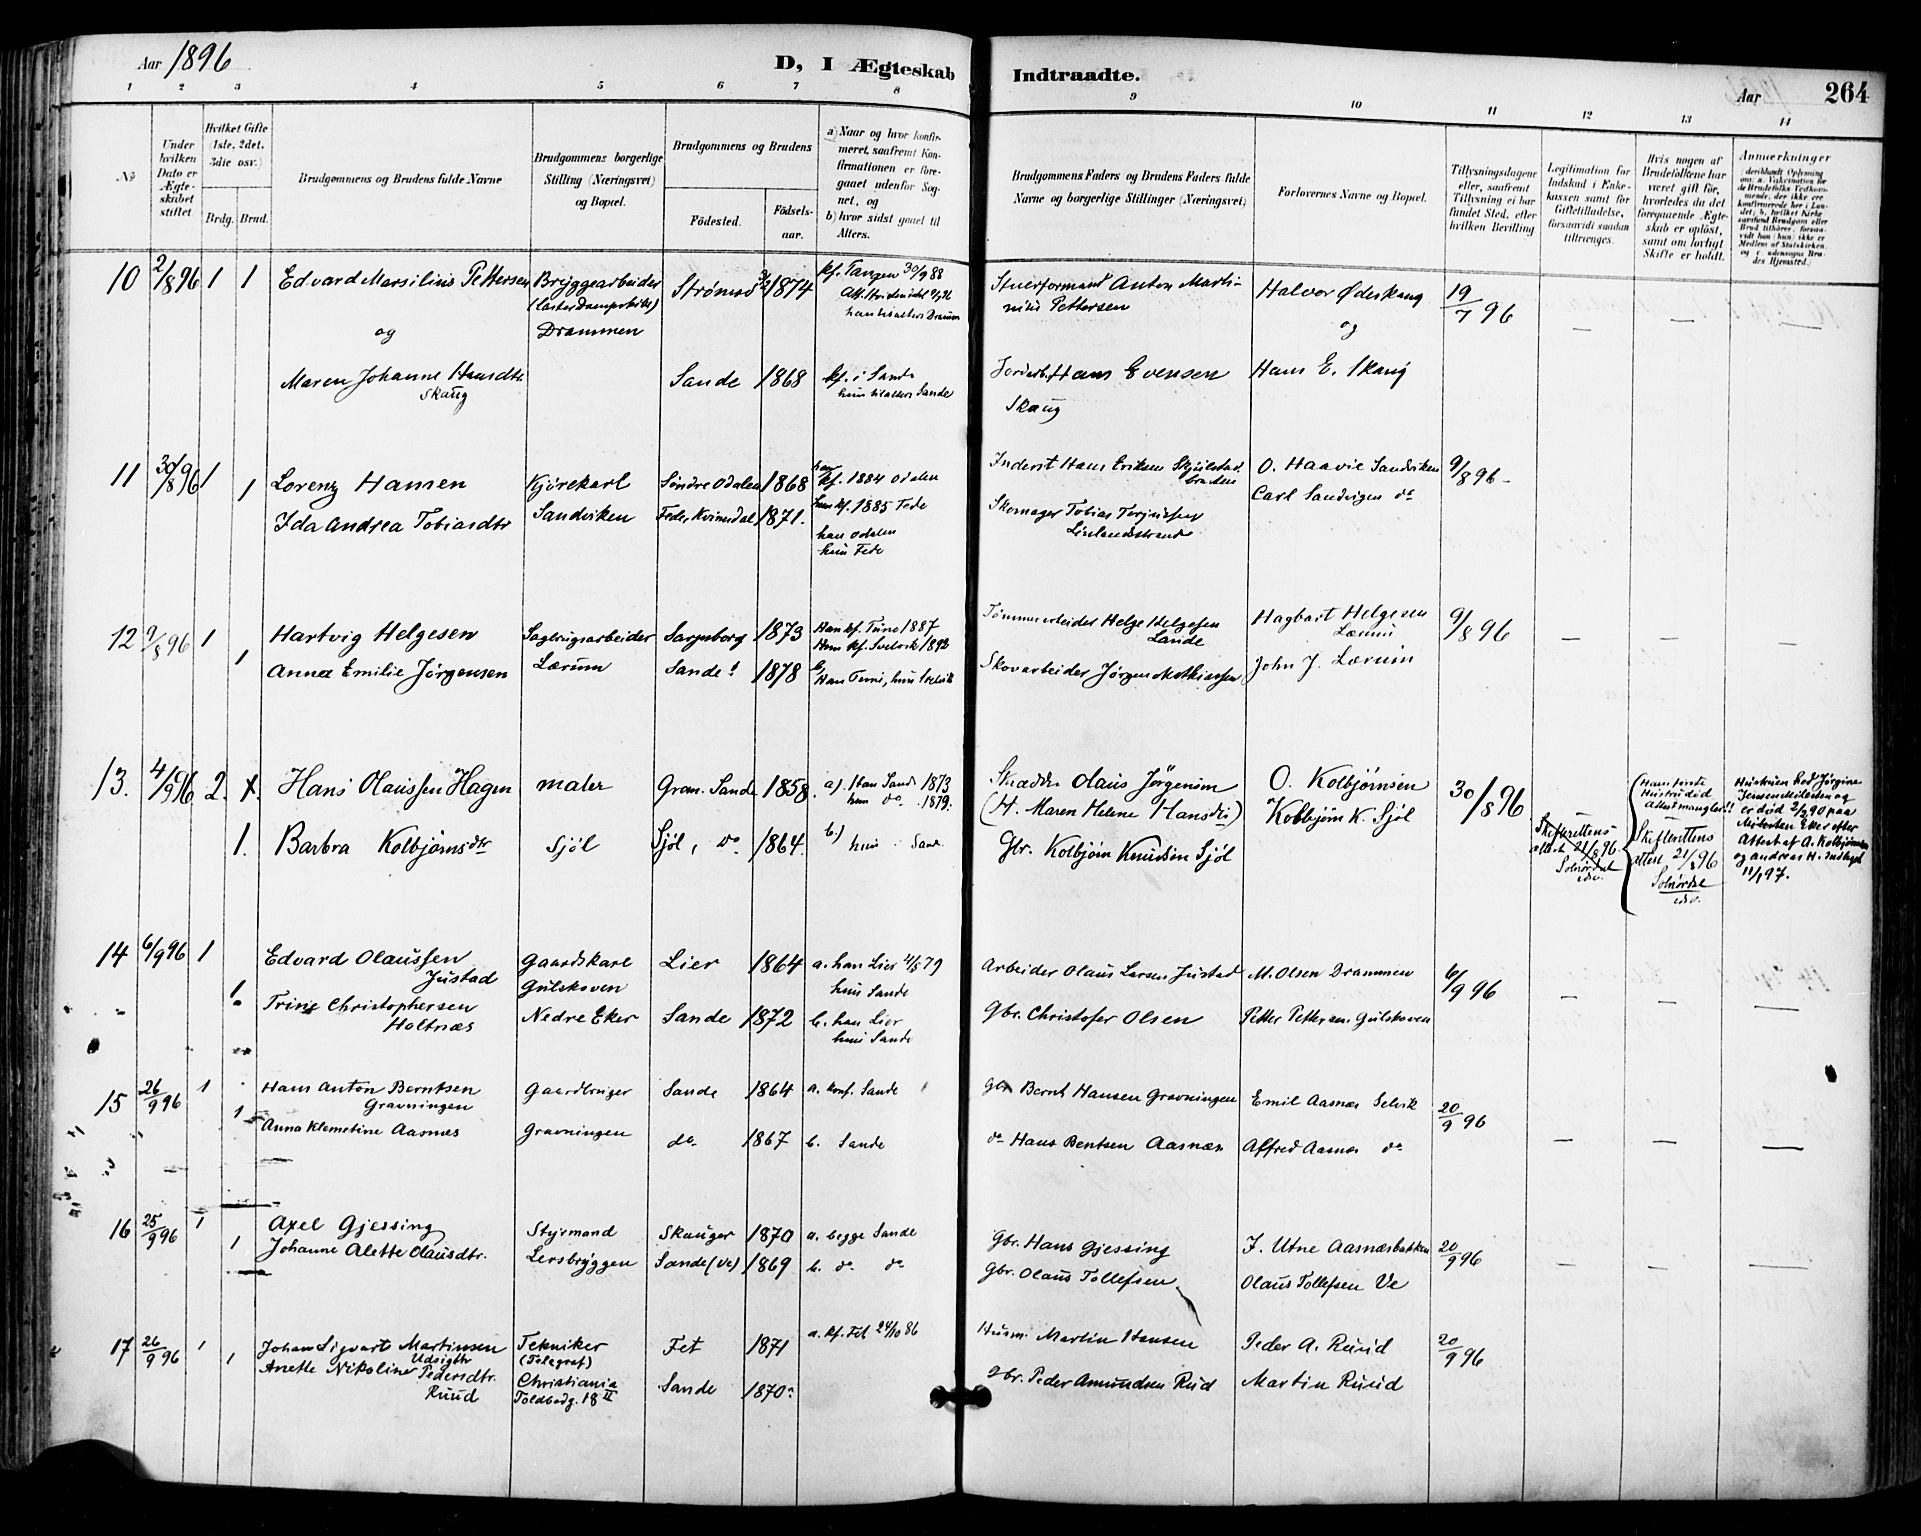 Aar 1896
D, I Ægteskab Indtraadte.
Aar 264
1 2 3 4 5 6 7 8 9 10 11 12 13 14
No
Under hvilken Dato er Ægteskabet stiftet.
Hvilket Gifte (1ste, 2det, 3die osv.)
Brdg. Brud.
Brudgommens og Brudens fulde Navne
Brudgommens borgerlige Stilling (Næringsvei) og Bopæl.
Brudgommens og Brudens
Födested. Födsels-aar.
a) Naar og hvor konfirmeret, saafremt Konfirmationen er foregaaet udenfor Sognet, og
b) hvor sidst gaaet til Alters.
Brudgommens Faders og Brudens Faders fulde Navne og borgerlige Stillinger (Næringsvei)
Forlovernes Navne og Bopæl.
Tillysningsdagene eller, saafremt Tillysning ei har fundet Sted, efter hvilken Bevilling
Legitimation for Indskud i Enkekassen samt for Giftetilladelse, forsaavidt saadan tiltrænges.
Hvis nogen af Brudefolkene har været gift för, hvorledes da det foregaaende Ægteskab er oplöst, samt om lovligt Skifte er holdt.
Anmærkninger
10 2/8 96 1 1 Edvard Marsilius Pettersen Bryggearbeider Strømsö 1874 kf. Tangen 30/9 88
Drammen
og
Stuerformand Anton Martinius Pettersen Halvor Ødeskaug 19/7 96
og
Maren Johanne Hansdtr. Skaug Sande 1868 kf. i Sande
Jordarb. Hans Evensen Skaug Hans E. Skaug
11 30/8 96 1 1 Lorenz Hansen Kjörekarl Söndre Odalen 1868 han kf. 1884 Odalen
Ida Andrea Tobiasdtr Sandviken Fede, Kvinesdal 1871. hun kf. 1885 Fede
han Odalen
hun Fede
Inderst Hans Eriksen O. Haavie Sandviken 9/8 96
Skomager Tobias Terjussen Carl Sandvigen do
12 9/8 96 1 1 Hartvig Helgesen Sagbrugsarbeider Sarpsborg 1873 Han kf. Tune 1887
Hun kf. Svelvik 1892
Anna Emilie Jörgensen Lærum Sande 1878 Han Tune, hun Svelvik
Tømmerarbeider Helge Helgesen Lande Hagbart Helgesen Lærum 9/8 96
Skovarbeider Jörgen Mathiassen John J. Lærum
13. 4/9 96 2. 1. Hans Olaussen Hagen maler Gran. Sande 1858. a) Han Sande 1873
hun do 1879.
Barbra Kolbjørnsdtr Sjöl Sjöl, do 1864. b) hun Sande
Skrædder Olaus Jörgensen O. Kolbjørnsen 30/8 96
(H. Maren Helene Hansdtr) Kolbjörn K. Sjöl
Gbr. Kolbjörn Knudsen Sjöl
Skifterettens attest 21/8 96
Hans første Hustru død
Attest mangler!!
Skifterettens attest 21/8 96
Hustruen hed Jørgine Jensen Milesten og er död 2/2 90 paa Milesten Eker efter Attest af A. Kolbjörnsen og Andreas H. indlagt 11/1 97.
14 6/9 96 1 1 Edvard Olaussen Justad Gaardskarl Lier 1864 a. han Lier 4/5 79
Gulskoven hun Sande
Trine Christophersen Holtnæs Nedre Eker Sande 1872 b. han Lier
hun Sande
Arbeider Olaus Larsen Justad M. Olsen Drammen 6/9 96
Gbr. Christofer Olsen Petter Pettersen Gulskoven
15 26/9 96 1 1 Hans Anton Berntsen Gravningen Gaardbruger Sande 1864 a. konf. Sande
Anna Klemetine Aasnæs Gravningen do 1867 b. Sande
Gbr Bernt Hansen Gravningen Emil Aasnæs Selvik 20/9 96
do Hans Bentsen Aasnæs Alfred Aasnæs do
16 25/9 96 1 1 Axel Gjessing Styrmand Skauger 1870 a. begge Sande
Johanne Alette Olausdtr. Lersbryggen Sande (Ve) 1869 b. do do
Gbr. Hans Gjessing J. Utne Aasnæsbakken 20/9 96
Gbr. Olaus Tollefsen Olaus Tollefsen Ve
17 26/9 96 1 1 Johan Sigvart Martinsen Udsigth Tekniker (Telegraf) Fet 1871 a. kf. Fet 24/10 86
Anette Nikoline Pedersdtr. Ruud Christiania Toldbodg. 18 II Sande 1870
Husm. Martin Hansen Peder A. Ruud 20/9 96
Gbr. Peder Amundsen Rud Martin Ruud